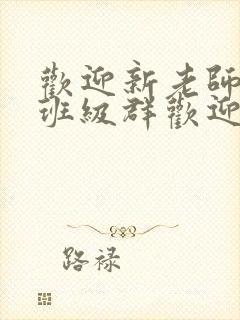 歡迎新老師
班級群歡迎
路禄